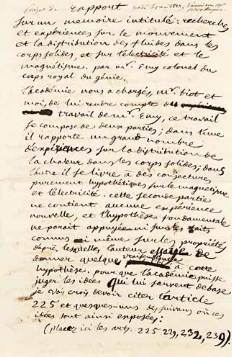 projet de rapport
Sur un mémoire intitulé: recherches
et expériences sur le mouvement
et la distribution des fluides dans les
corps solides, et sur l'électricité et le
magnétisme, par mr. Emy colonel du
corps royal du génie.
L'académie nous a chargés, mr. biot et
moi, de lui rendre compte du
travail de mr. Emy. ce travail
se compose de deux parties; dans l'une
il rapporte un grand nombre
d'expériences sur la distribution de
la chaleur dans les corps solides; dans
l'autre il se livre à des conjectures
purement hypothétiques sur le magnétisme
et l'électricité. cette seconde partie
ne contient aucune expérience
nouvelle, et l'hypothèse fondamentale
ne paraît appuyée ni sur les faits
connus ni même sur les propriétés
dont, l'auteur essaye de
donner quelque à cette
hypothèse. pour que l'académie puisse
juger les idées qui lui servent de base
je crois devoir citer l'article
225 et quelques-uns des suivans où ces
idées sont ainsi exposées:
(placez ici les art. 225, 229, 232, 239).